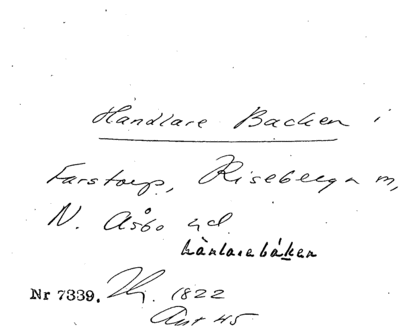 Handlare Backen i
Farstorp, Riseberga m,
N. Åsbo hd.
hànlarebáken
Nr 7339. 1822
Ant 45